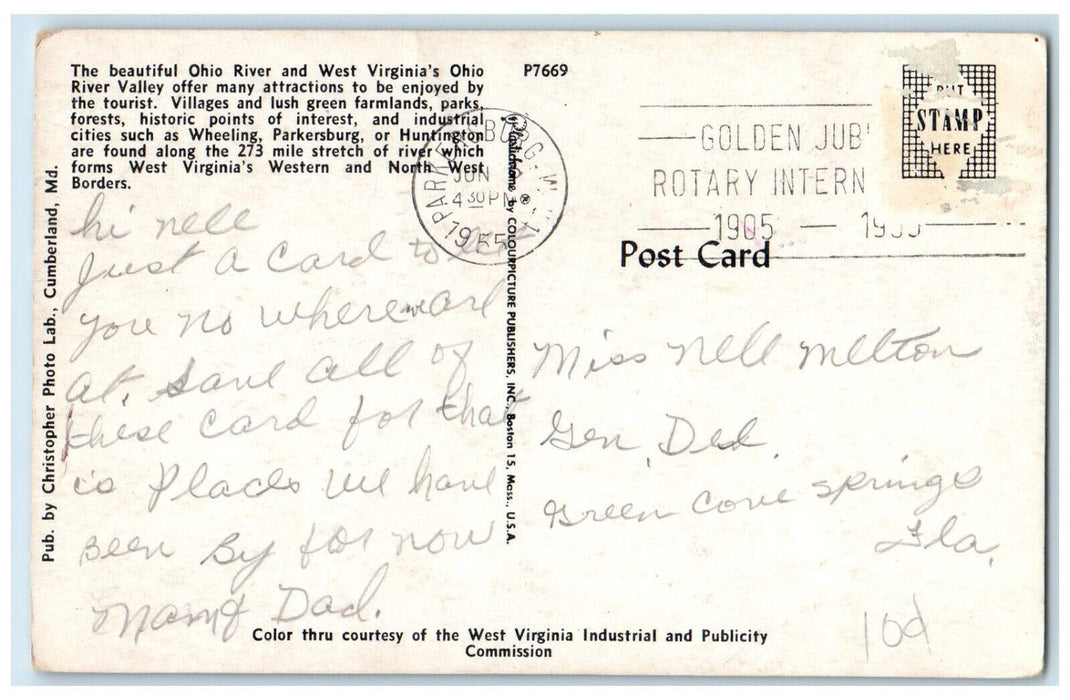 The beautiful Ohio River and West Virginia's Ohio
River Valley offer many attractions to be enjoyed by
the tourist. Villages and lush green farmlands, parks,
forests, historic points of interest, and industrial
cities such as Wheeling, Parkersburg, or Huntington
are found along the 273 mile stretch of river which
forms West Virginia's Western and North West
Borders.
P7669
Pub. by Christopher Photo Lab., Cumberland, Md.
hi nell
Just a Card to let
you no where we are
at. Save all of
these card for that
is Places we have
Been By for now
Mam & Dad.
by COLOURPICTURE PUBLISHERS, INC., Boston 15, Mass., U.S.A.
PARKERSBURG, W.
JUN
4 30 PM
1955
GOLDEN JUB
ROTARY INTERN
1905 — 19
PUT
STAMP
HERE
Post Card
Miss Nell Melton
Gen. Del.
Green Cove Springs
Fla.
10d
Color thru courtesy of the West Virginia Industrial and Publicity
Commission